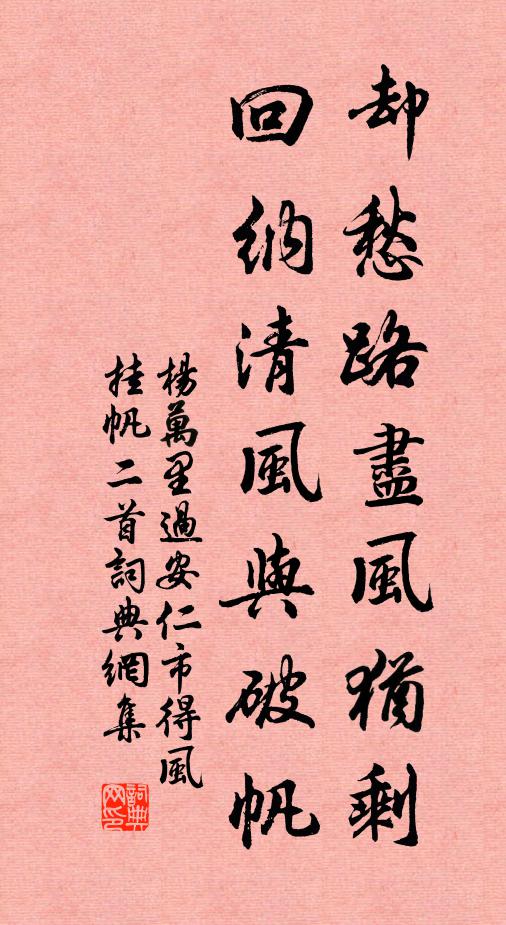 却愁路盡風猶剩
回納清風與破帆
楊萬里過安仁市得風
挂帆二首詞典網集
詞典網印